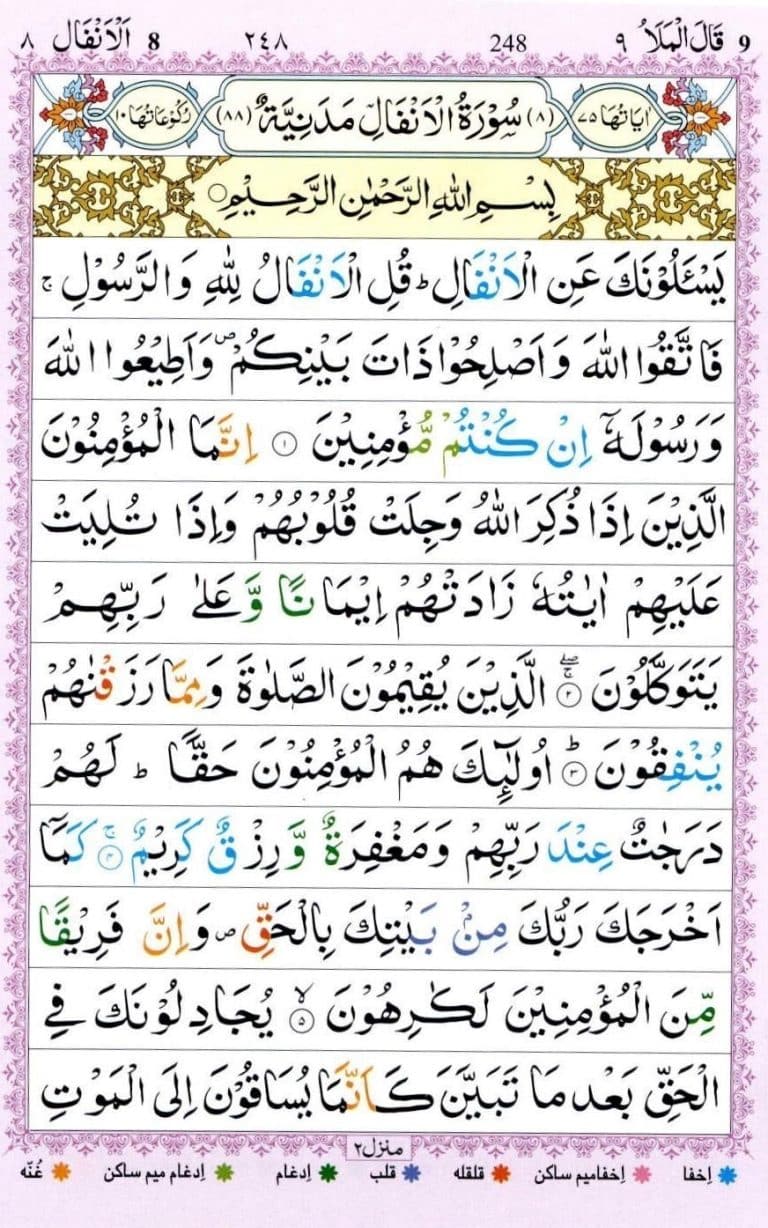 9 قَالَ الْمَلَاُ ٩ 248 ٢٤٨ 8 اَلْاَنْفَال ٨
اٰيَاتُهَا ٧٥ (٨) سُوْرَةُ الْاَنْفَالِ مَدَنِيَّةٌ (٨٨) رُكُوْعَاتُهَا ١٠
بِسْمِ اللّٰهِ الرَّحْمٰنِ الرَّحِيْمِ ۝
يَسْـَٔلُوْنَكَ عَنِ الْاَنْفَالِ ؕ قُلِ الْاَنْفَالُ لِلّٰهِ وَالرَّسُوْلِ ۚ
فَاتَّقُوا اللّٰهَ وَاَصْلِحُوْا ذَاتَ بَيْنِكُمْ ۪ وَاَطِيْعُوا اللّٰهَ
وَرَسُوْلَهٗۤ اِنْ كُنْتُمْ مُّؤْمِنِيْنَ ۝١ اِنَّمَا الْمُؤْمِنُوْنَ
الَّذِيْنَ اِذَا ذُكِرَ اللّٰهُ وَجِلَتْ قُلُوْبُهُمْ وَاِذَا تُلِيَتْ
عَلَيْهِمْ اٰيٰتُهٗ زَادَتْهُمْ اِيْمَانًا وَّعَلٰى رَبِّهِمْ
يَتَوَكَّلُوْنَ ۝٢ۖۚ الَّذِيْنَ يُقِيْمُوْنَ الصَّلٰوةَ وَمِمَّا رَزَقْنٰهُمْ
يُنْفِقُوْنَ ۝٣ؕ اُولٰٓئِكَ هُمُ الْمُؤْمِنُوْنَ حَقًّا ؕ لَهُمْ
دَرَجٰتٌ عِنْدَ رَبِّهِمْ وَمَغْفِرَةٌ وَّرِزْقٌ كَرِيْمٌ ۝٤ۚ كَمَاۤ
اَخْرَجَكَ رَبُّكَ مِنْۢ بَيْتِكَ بِالْحَقِّ ۪ وَاِنَّ فَرِيْقًا
مِّنَ الْمُؤْمِنِيْنَ لَكٰرِهُوْنَ ۝٥ۙ يُجَادِلُوْنَكَ فِي
الْحَقِّ بَعْدَ مَا تَبَيَّنَ كَاَنَّمَا يُسَاقُوْنَ اِلَى الْمَوْتِ
منزل ٢
اِخفا اِخفامیم ساکن قلقله قلب اِدغام اِدغام میم ساکن غُنّه